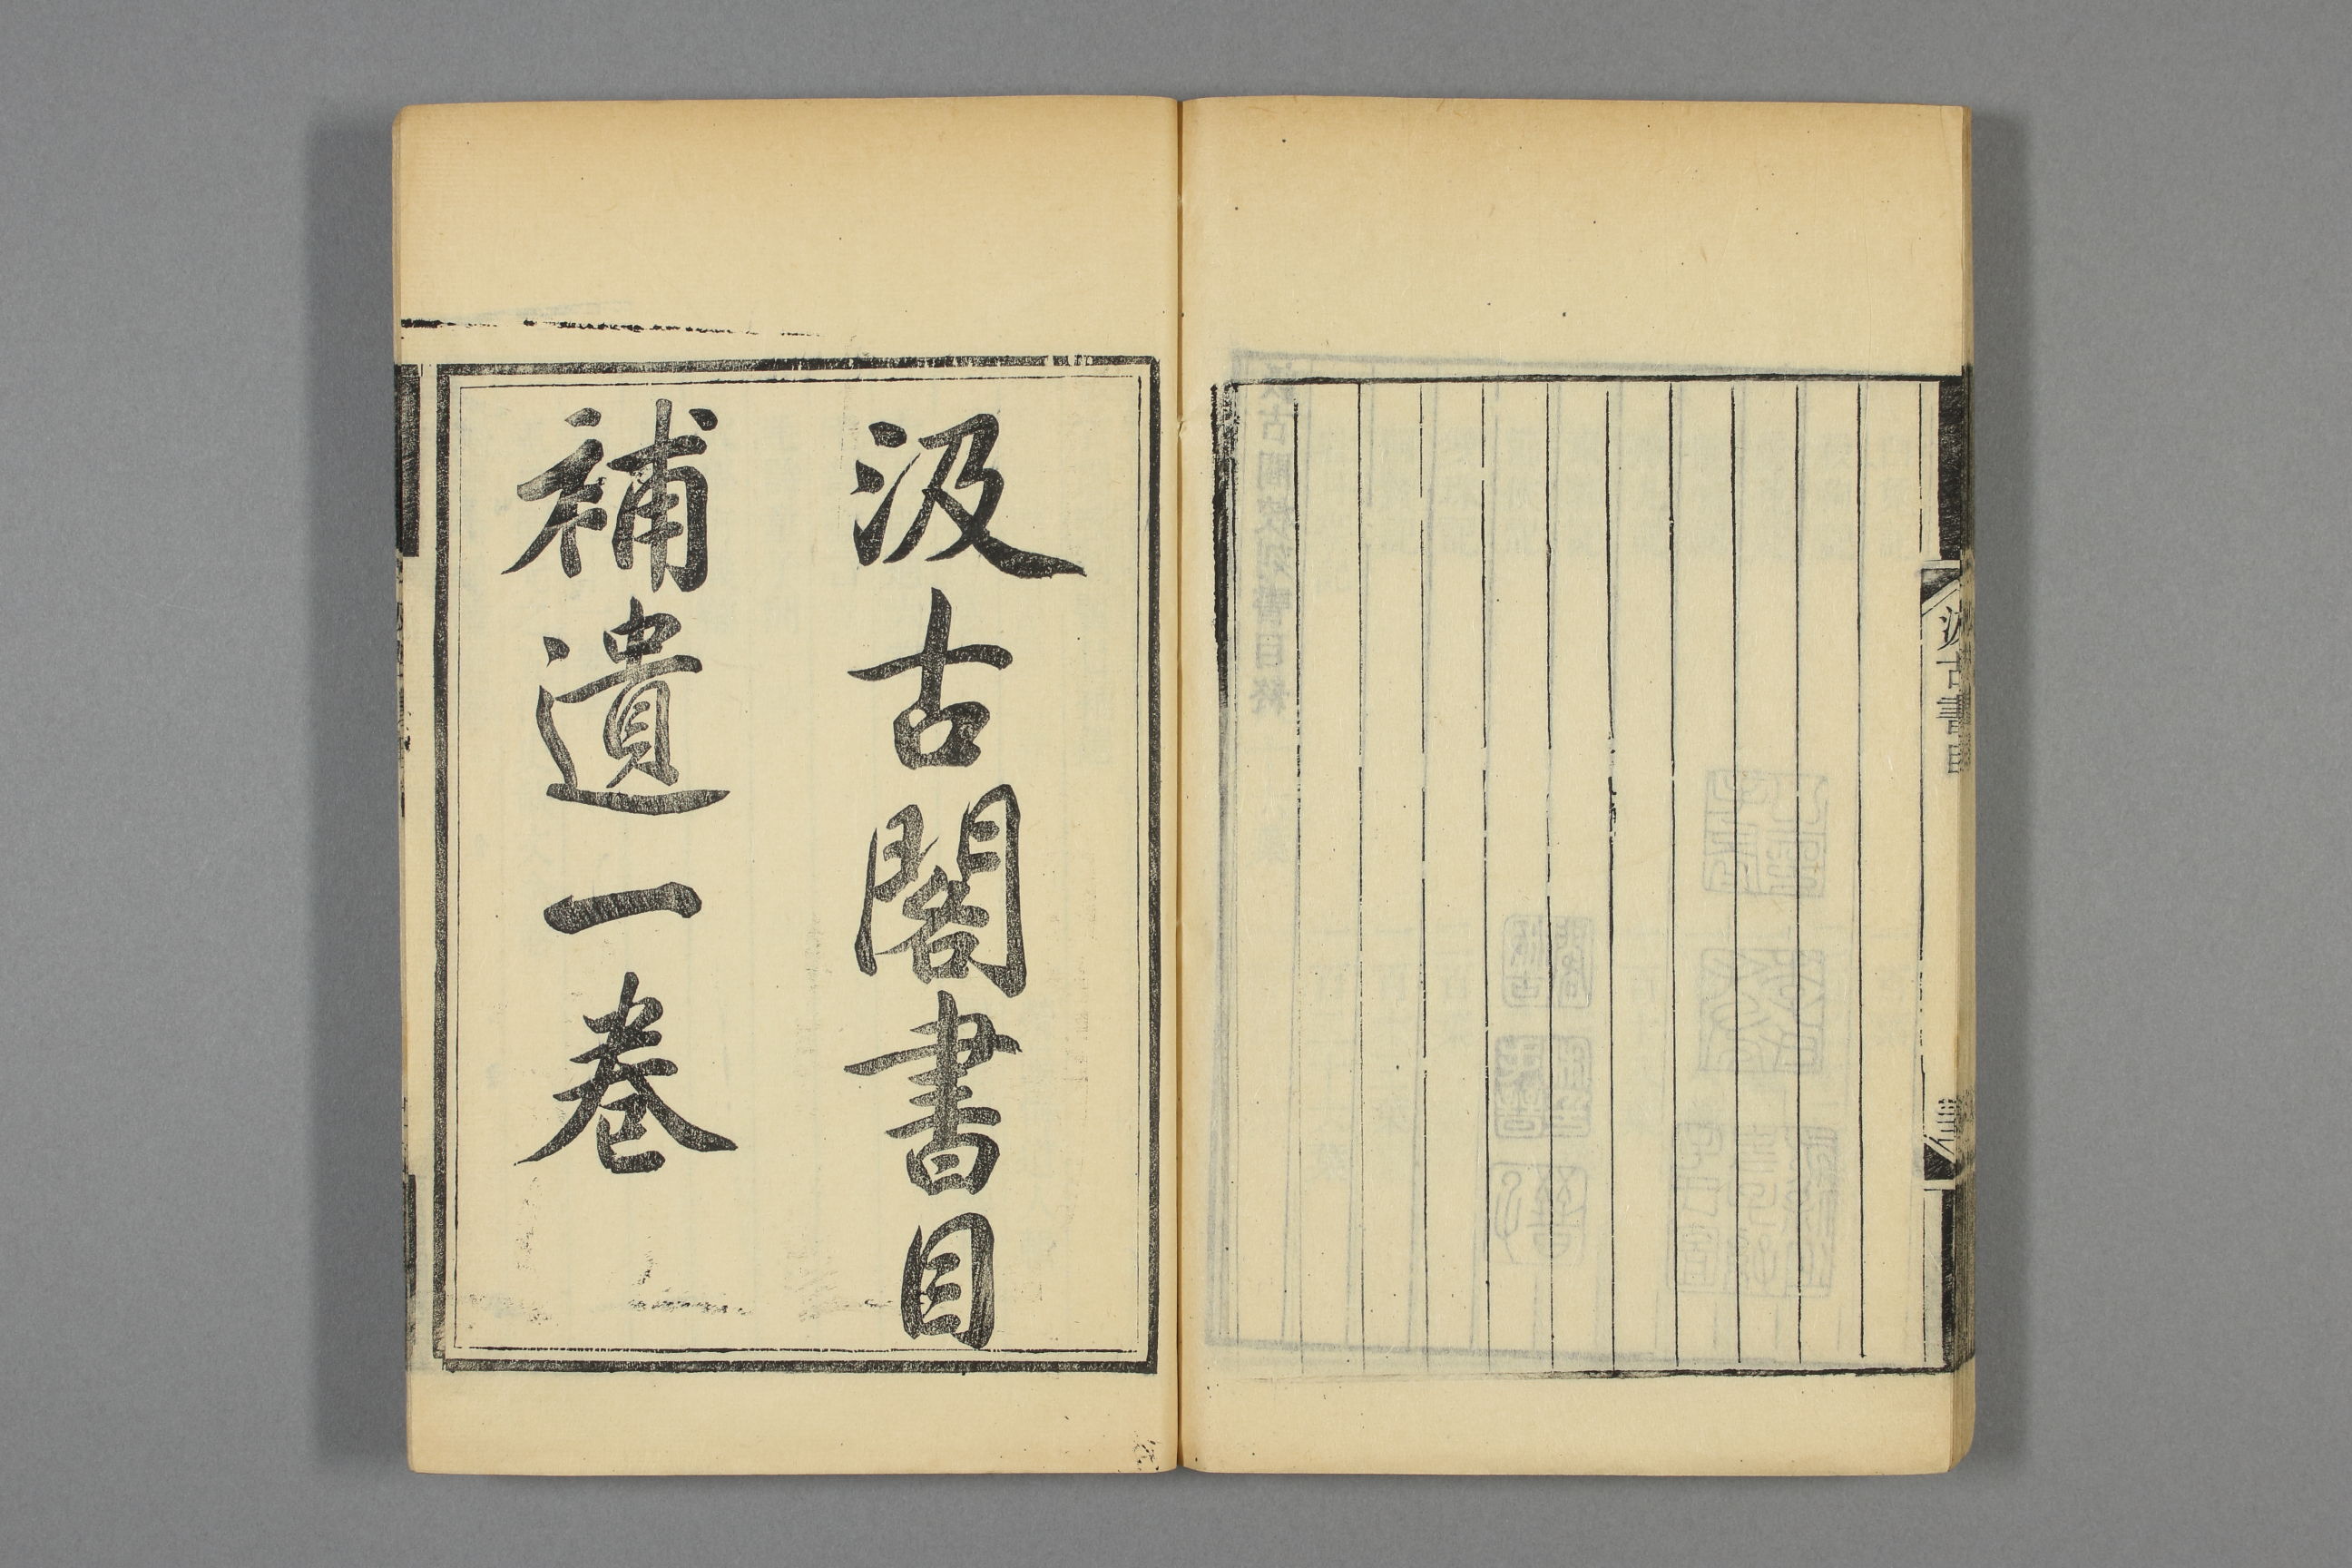 汲古書目
汲古閣書目
補遺一卷